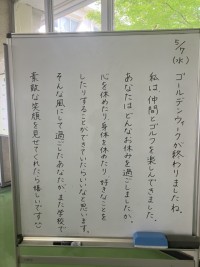 5/7(水)
ゴールデンウィークが終わりましたね。
私は、仲間とゴルフを楽しんできました。
あなたは、どんなお休みを過ごしましたか。
心を休めたり、身体を休めたり、好きなことを
したりすることができていたらいいなと思います。
そんな風にして過ごしたあなたが、また学校で
素敵な笑顔を見せてくれたら嬉しいです¨)